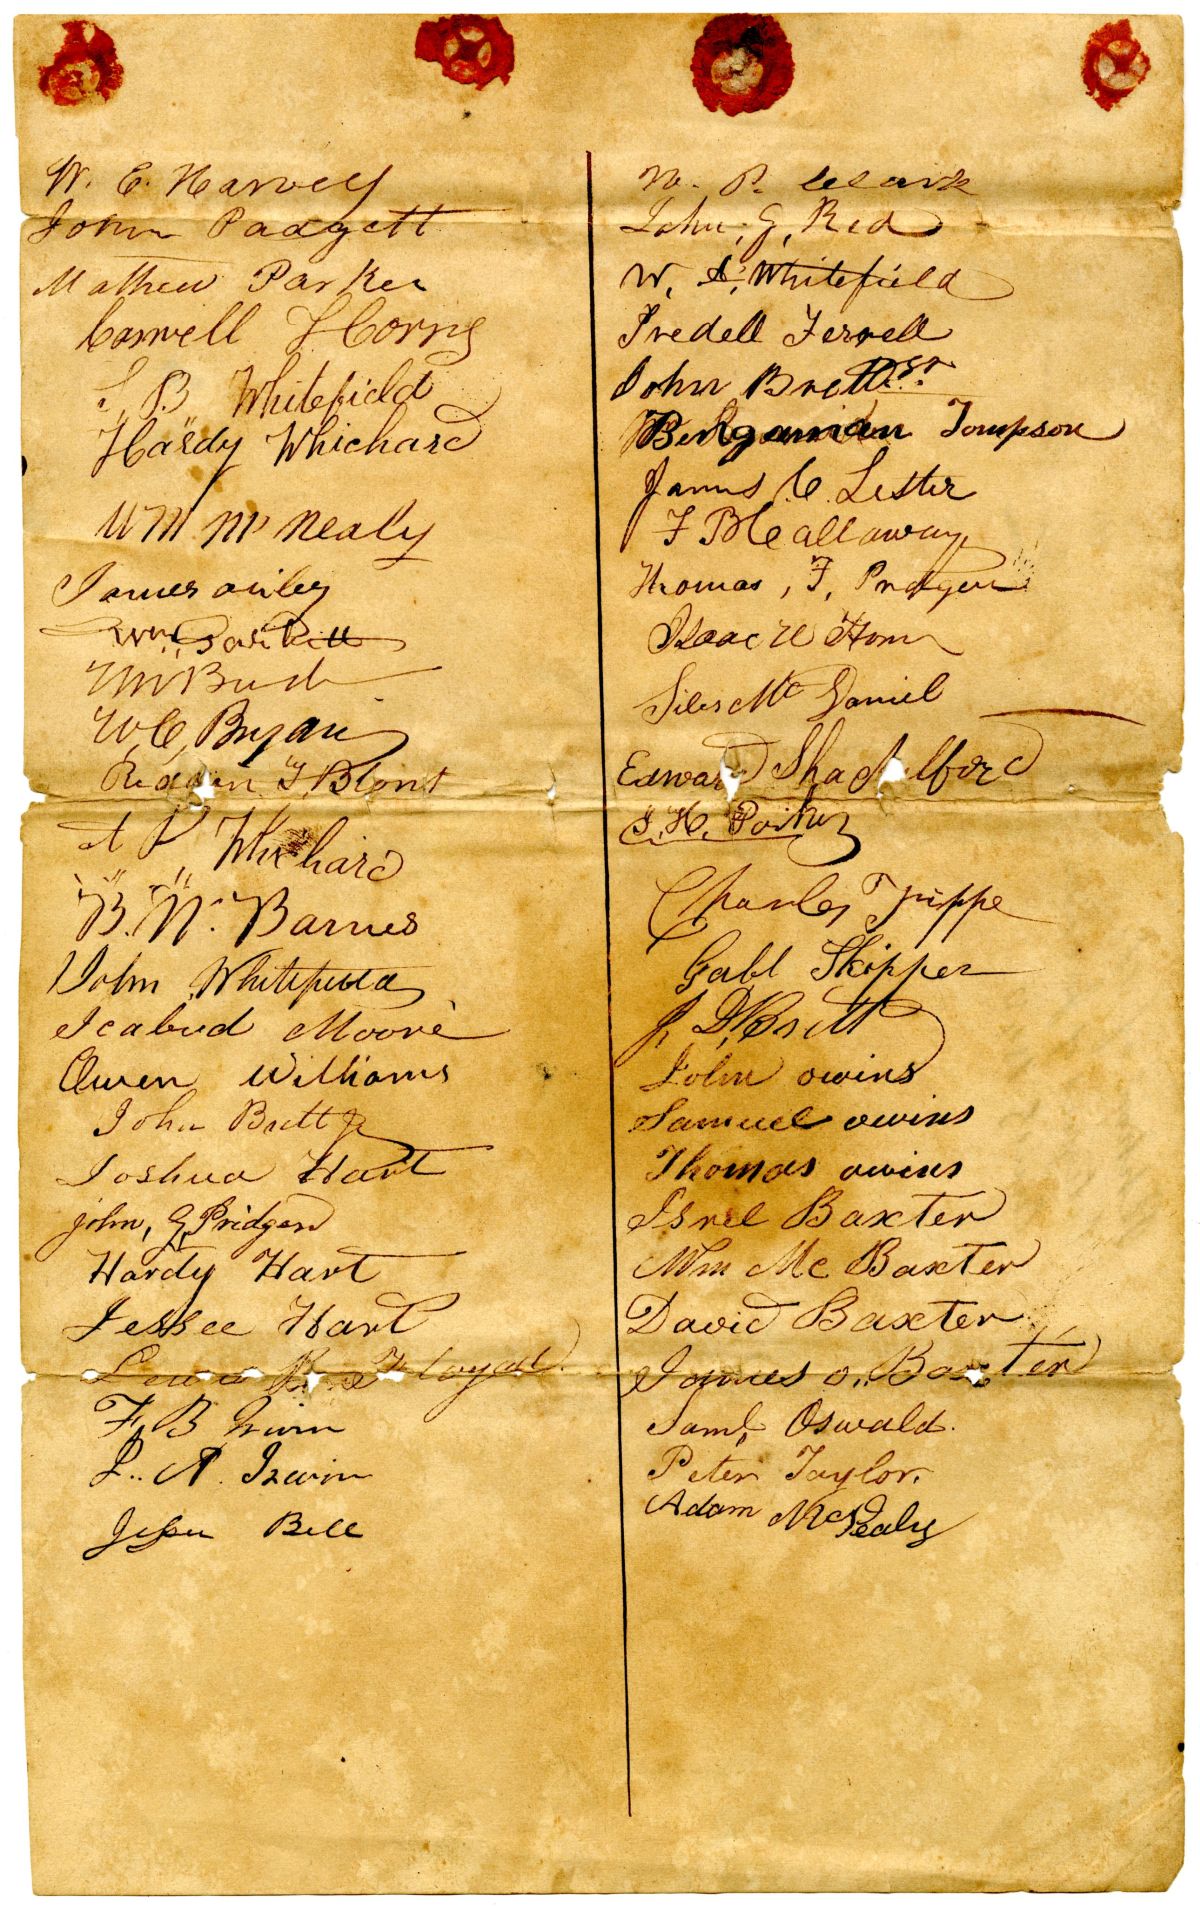 W. E. Harvell
John Padgett
Mathew Parker
Carwell Horne
B. Whitefield
Hardy Whichard
Wm McNealy
James
Wm
Wm Bush
W. C. Bryan
Reddin J. Blont
Whichard
B. N. Barnes
John Whitefield
Icabud Moore
Owen Williams
John Britt Jr
Joshua Hart
john, G, Pridgen
Hardy Hart
Jessee Hart
Floyd
F. B. Irwin
L. A. Irwin
Bell
P. Clark
John, G, Red
W. Whitefield
Iredell Ferrell
John Britt Sr.
Bengaman Tompson
James C. Lester
F B Callaway
Thomas, F, Pridgen
Isaac W Horn
Siles McDaniel
Edward Shackelford
J. H. Parker
Charles Trippe
Gabl Skipper
J. D. Britt
John owins
Samuel owins
Thomas owins
Isrel Baxter
Wm Mc Baxter
David Baxter
James o. Baxter
Saml Oswald.
Peter Taylor.
Adam McNealy